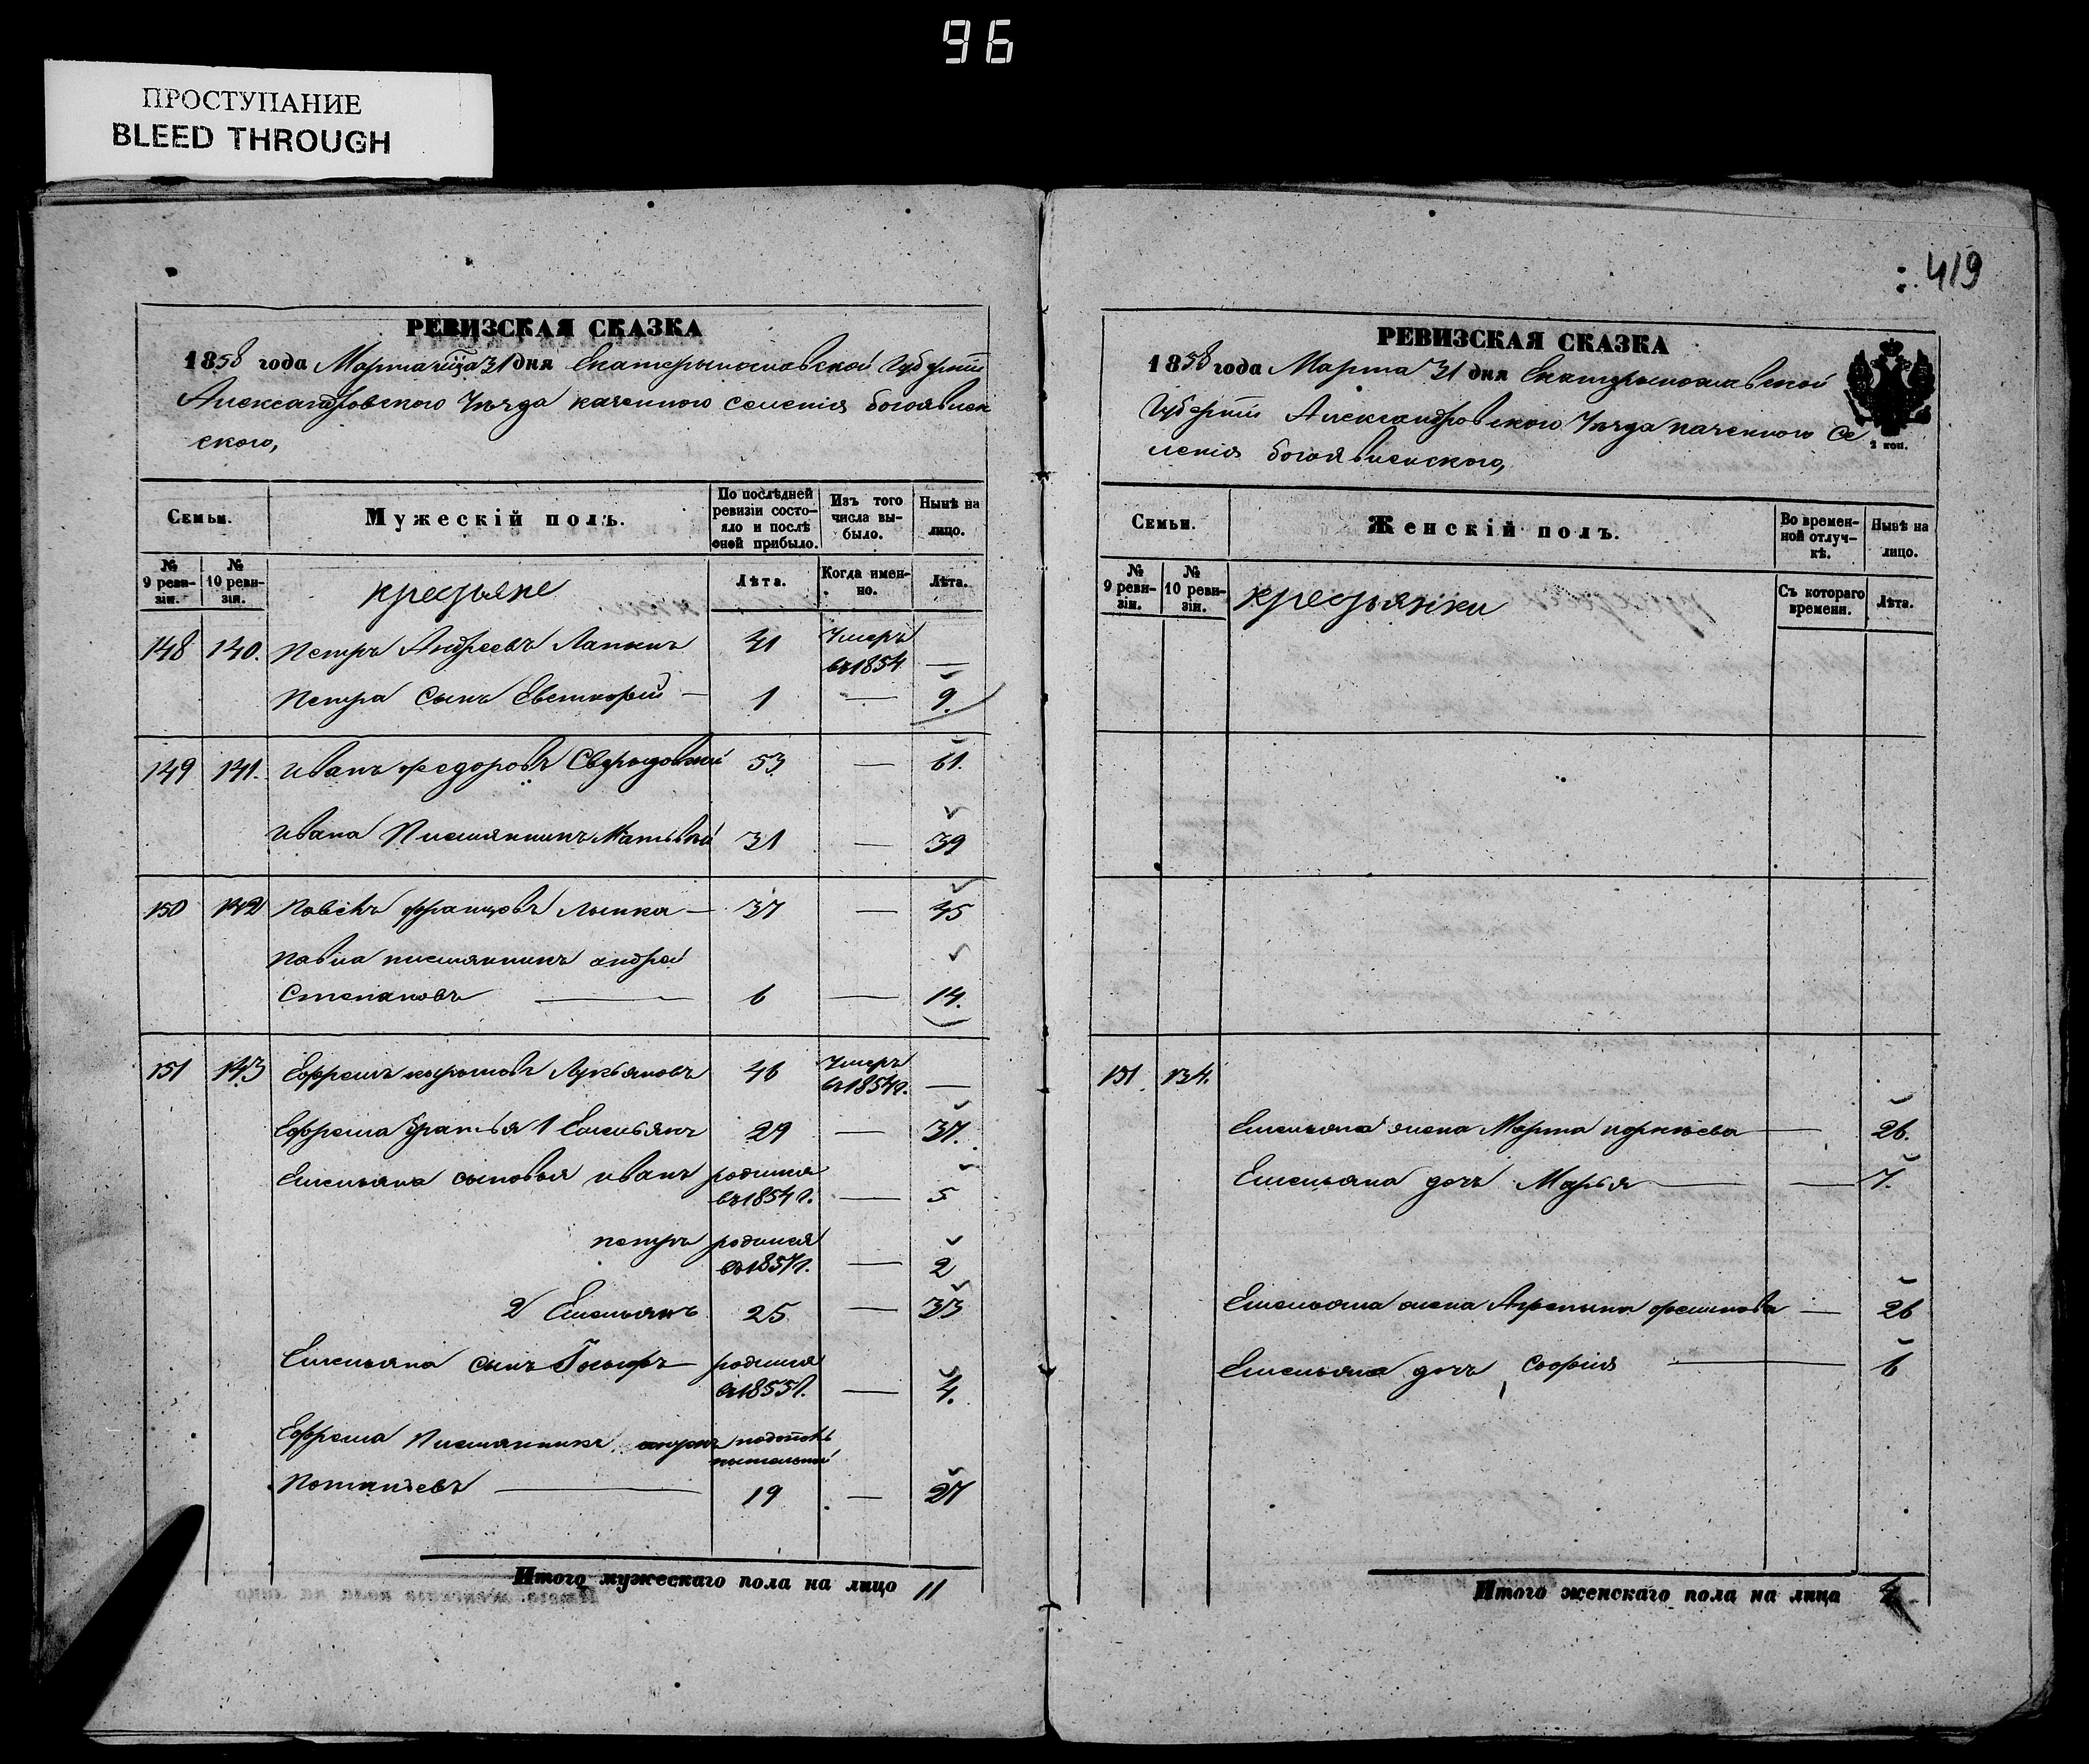 96
ПРОСТУПАНИЕ
BLEED THROUGH
РЕВИЗСКАЯ СКАЗКА
1858 года Марта 31 дня Екатерынославской Губернии
Александровского Уезда казенного селения богоявлен
ского,
Семьи.
Мужескій полъ.
По послѣдней ревизіи состо-
яло и послѣ оной прибыло.
Изъ того числа вы-
было.
Нынѣ на лицо.
№ 9 реви-
зіи.
№ 10 реви-
зіи.
крестьяне
Лѣта.
Когда имен-
но.
Лѣта.
148 140. Петръ Андреевъ Лапкинъ 41 Умеръ въ 1854 —
Петра сынъ — 1 — 9.
149 141. иванъ федоровъ 53 — 61.
ивана Племянникъ Матьвей 31 — 39
150 142 Павелъ францовъ — 37 — 45
Павла племянникъ андрей
Степановъ — 6 — 14.
151 143 Ефремъ Лукьяновъ 46 Умеръ въ 1854 г. —
Ефрема братья 1 Емельянъ 29 — 37.
Емельяна сыновья иванъ родился въ 1854 г. — 5
петръ родился въ 1857 г. — 2
2 Емельянъ 25 — 33
Емельяна сынъ родился въ 1855 г. — 4.
Ефрема Племянникъ
Потапъевъ — 19 — 27
Итого мужескаго пола на лицо 11
419
РЕВИЗСКАЯ СКАЗКА
1858 года Марта 31 дня Екатерынославской
Губернии Александровского Уезда казенного се
ления богоявленского,
2 коп.
Семьи.
Женскій полъ.
Во времен-
ной отлуч-
кѣ.
Нынѣ на лицо.
№ 9 реви-
зіи.
№ 10 реви-
зіи.
крестьянки
Съ котораго времени.
Лѣта.
151 134.
Емельяна жена Марта корнѣева — 26.
Емельяна дочь Марья — — 7.
Емельяна жена Агрепина — 26
Емельяна дочь София — 6
Итого женскаго пола на лица 4